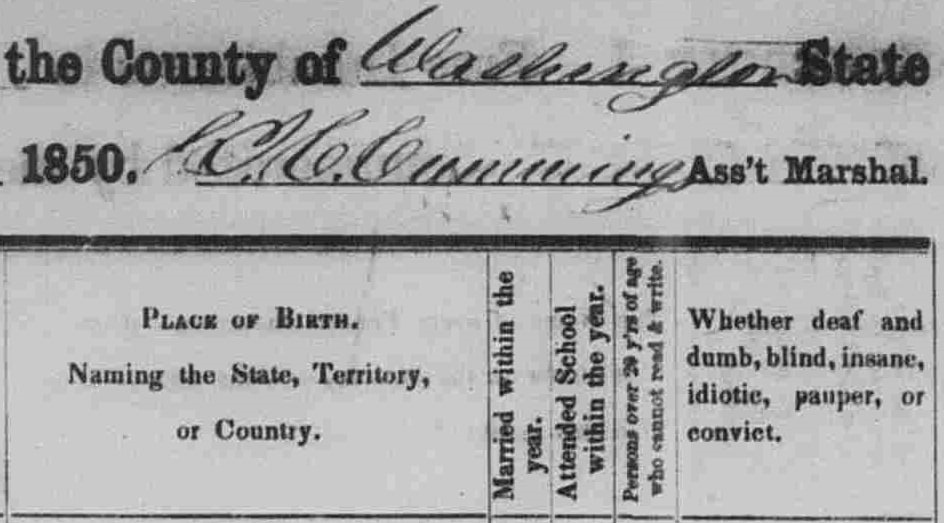 the County of Washington State
1850. Cumming Ass't Marshal.
PLACE OF BIRTH.
Naming the State, Territory,
or Country.
Married within the
year.
Attended School
within the year.
Persons over 20 y'rs of age
who cannot read & write.
Whether deaf and
dumb, blind, insane,
idiotic, pauper, or
convict.